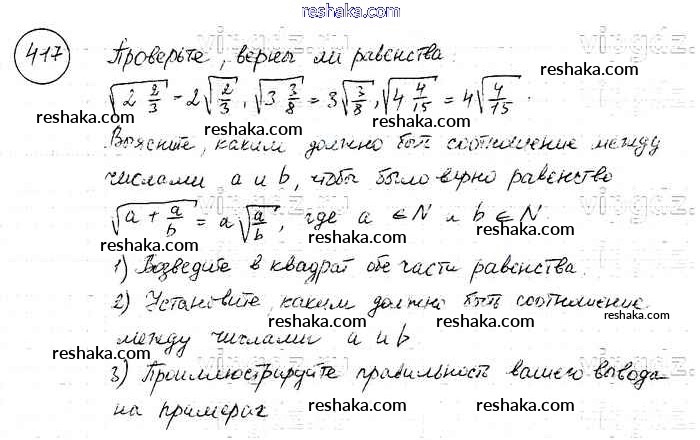 reshaka.com
417 Проверьте, верны ли равенства:
√(2 2/3) - 2√(2/3), √(3 3/8) = 3√(3/8), √(4 4/15) = 4√(4/15).
reshaka.com reshaka.com reshaka.com
Выясните, каким должно быть соотношение между
reshaka.com reshaka.com reshaka.com
числами a и b, чтобы было верно равенство
√(a + a/b) = a√(a/b), где a ∈ N и b ∈ N.
reshaka.com reshaka.com reshaka.com
1) Возведите в квадрат обе части равенства.
reshaka.com reshaka.com reshaka.com
2) Установите, каким должно быть соотношение
reshaka.com
между числами a и b
reshaka.com reshaka.com reshaka.com
3) Проиллюстрируйте правильность вашего вывода
на примерах
reshaka.com reshaka.com reshaka.com